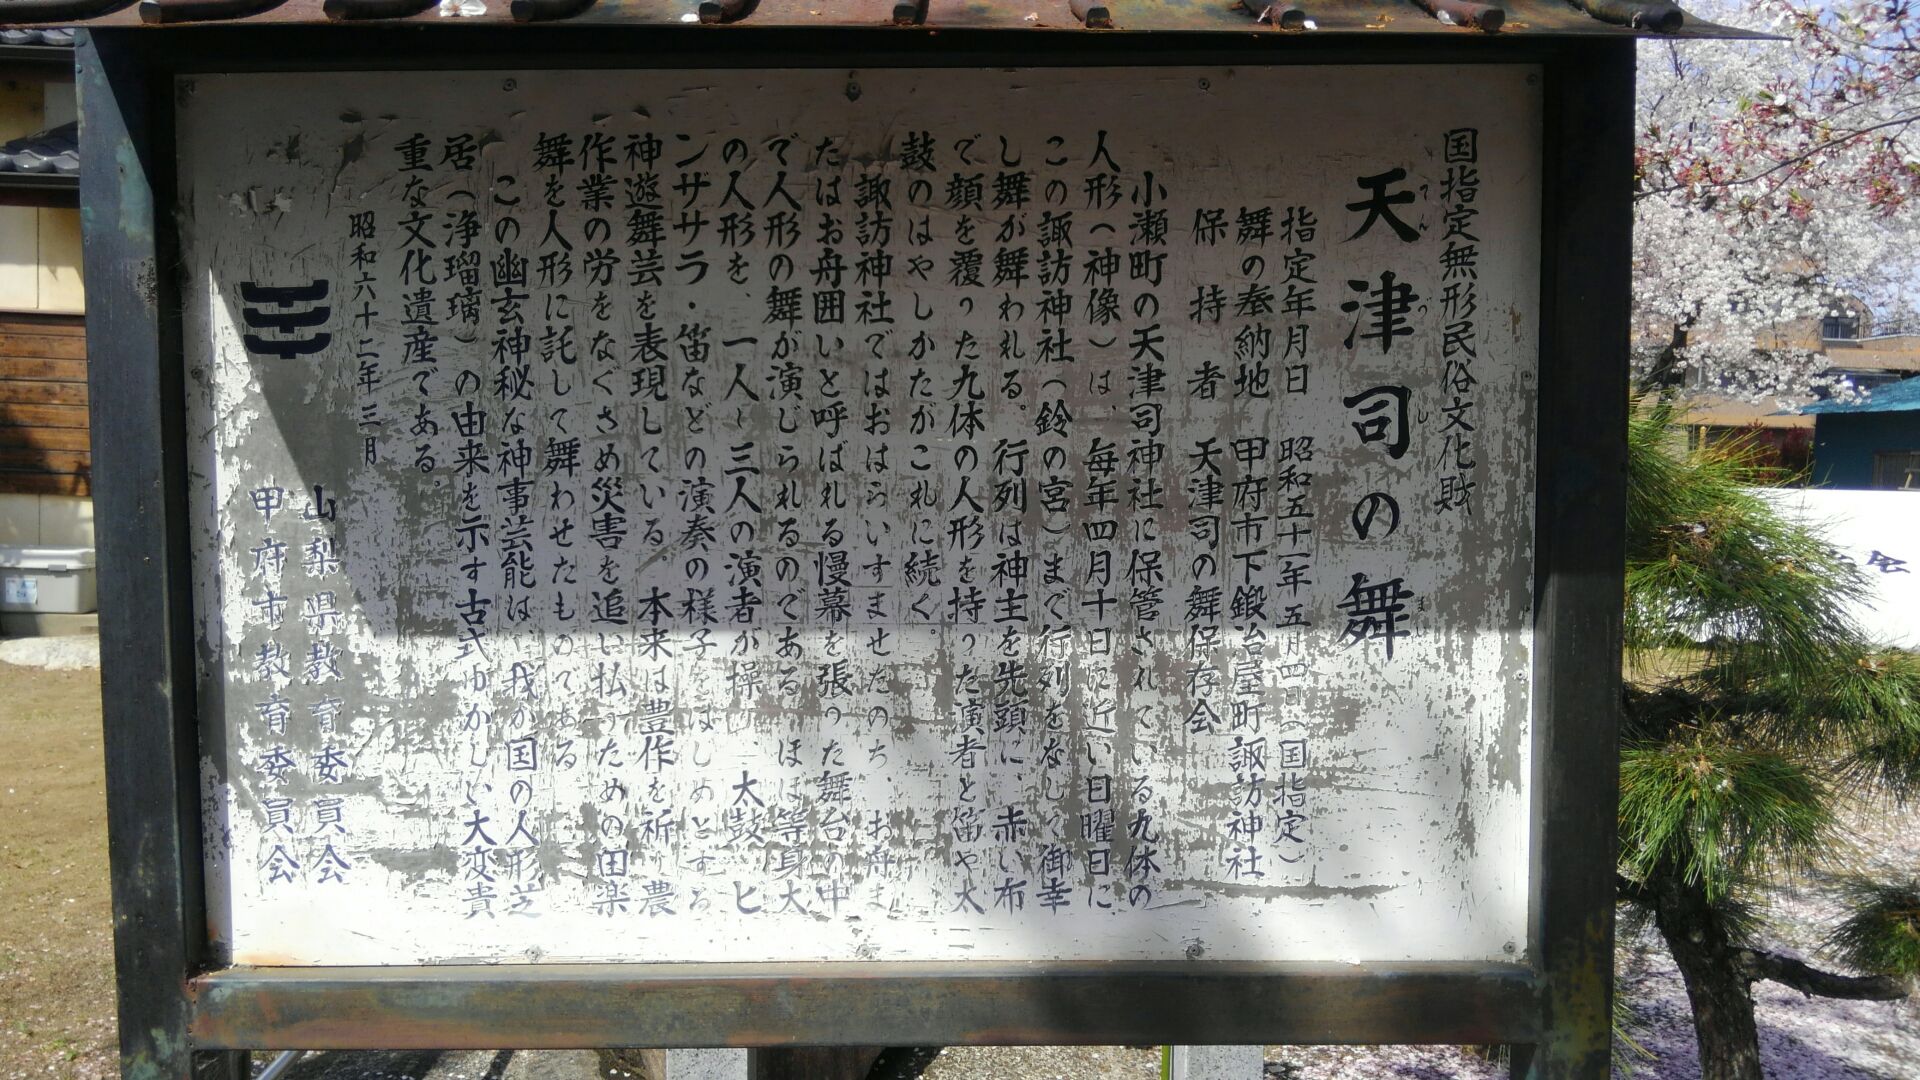 国指定無形民俗文化財
天津司の舞
てんつしまい
指定年月日 昭和五十一年五月四日(国指定)
舞の奉納地 甲府市下鍛冶屋町諏訪神社
保持者 天津司の舞保存会
小瀬町の天津司神社に保管されている九体の
人形(神像)は、毎年四月十日に近い日曜日に
この諏訪神社(鈴の宮)まで行列をなして御幸
し舞が舞われる。行列は神主を先頭に、赤い布
で顔を覆った九体の人形を持った演者と笛や太
鼓のはやしかたがこれに続く。
諏訪神社ではおはらいすませたのち、お舟ま
たはお舟囲いと呼ばれる幔幕を張った舞台の中
で人形の舞が演じられるのである ほぼ等身大
の人形を、一人〜三人の演者が操 、太鼓 ヒ
ンザサラ・笛などの演奏の様子をはじめとする
神遊舞芸を表現している。本来は豊作を祈 農
作業の労をなぐさめ災害を追い払うための田楽
舞を人形に託して舞わせたものである
この幽玄神秘な神事芸能は、我が国の人形芝
居(浄瑠璃)の由来を示す古式ゆかしい大変貴
重な文化遺産である。
昭和六十二年三月
山梨県教育委員会
甲府市教育委員会